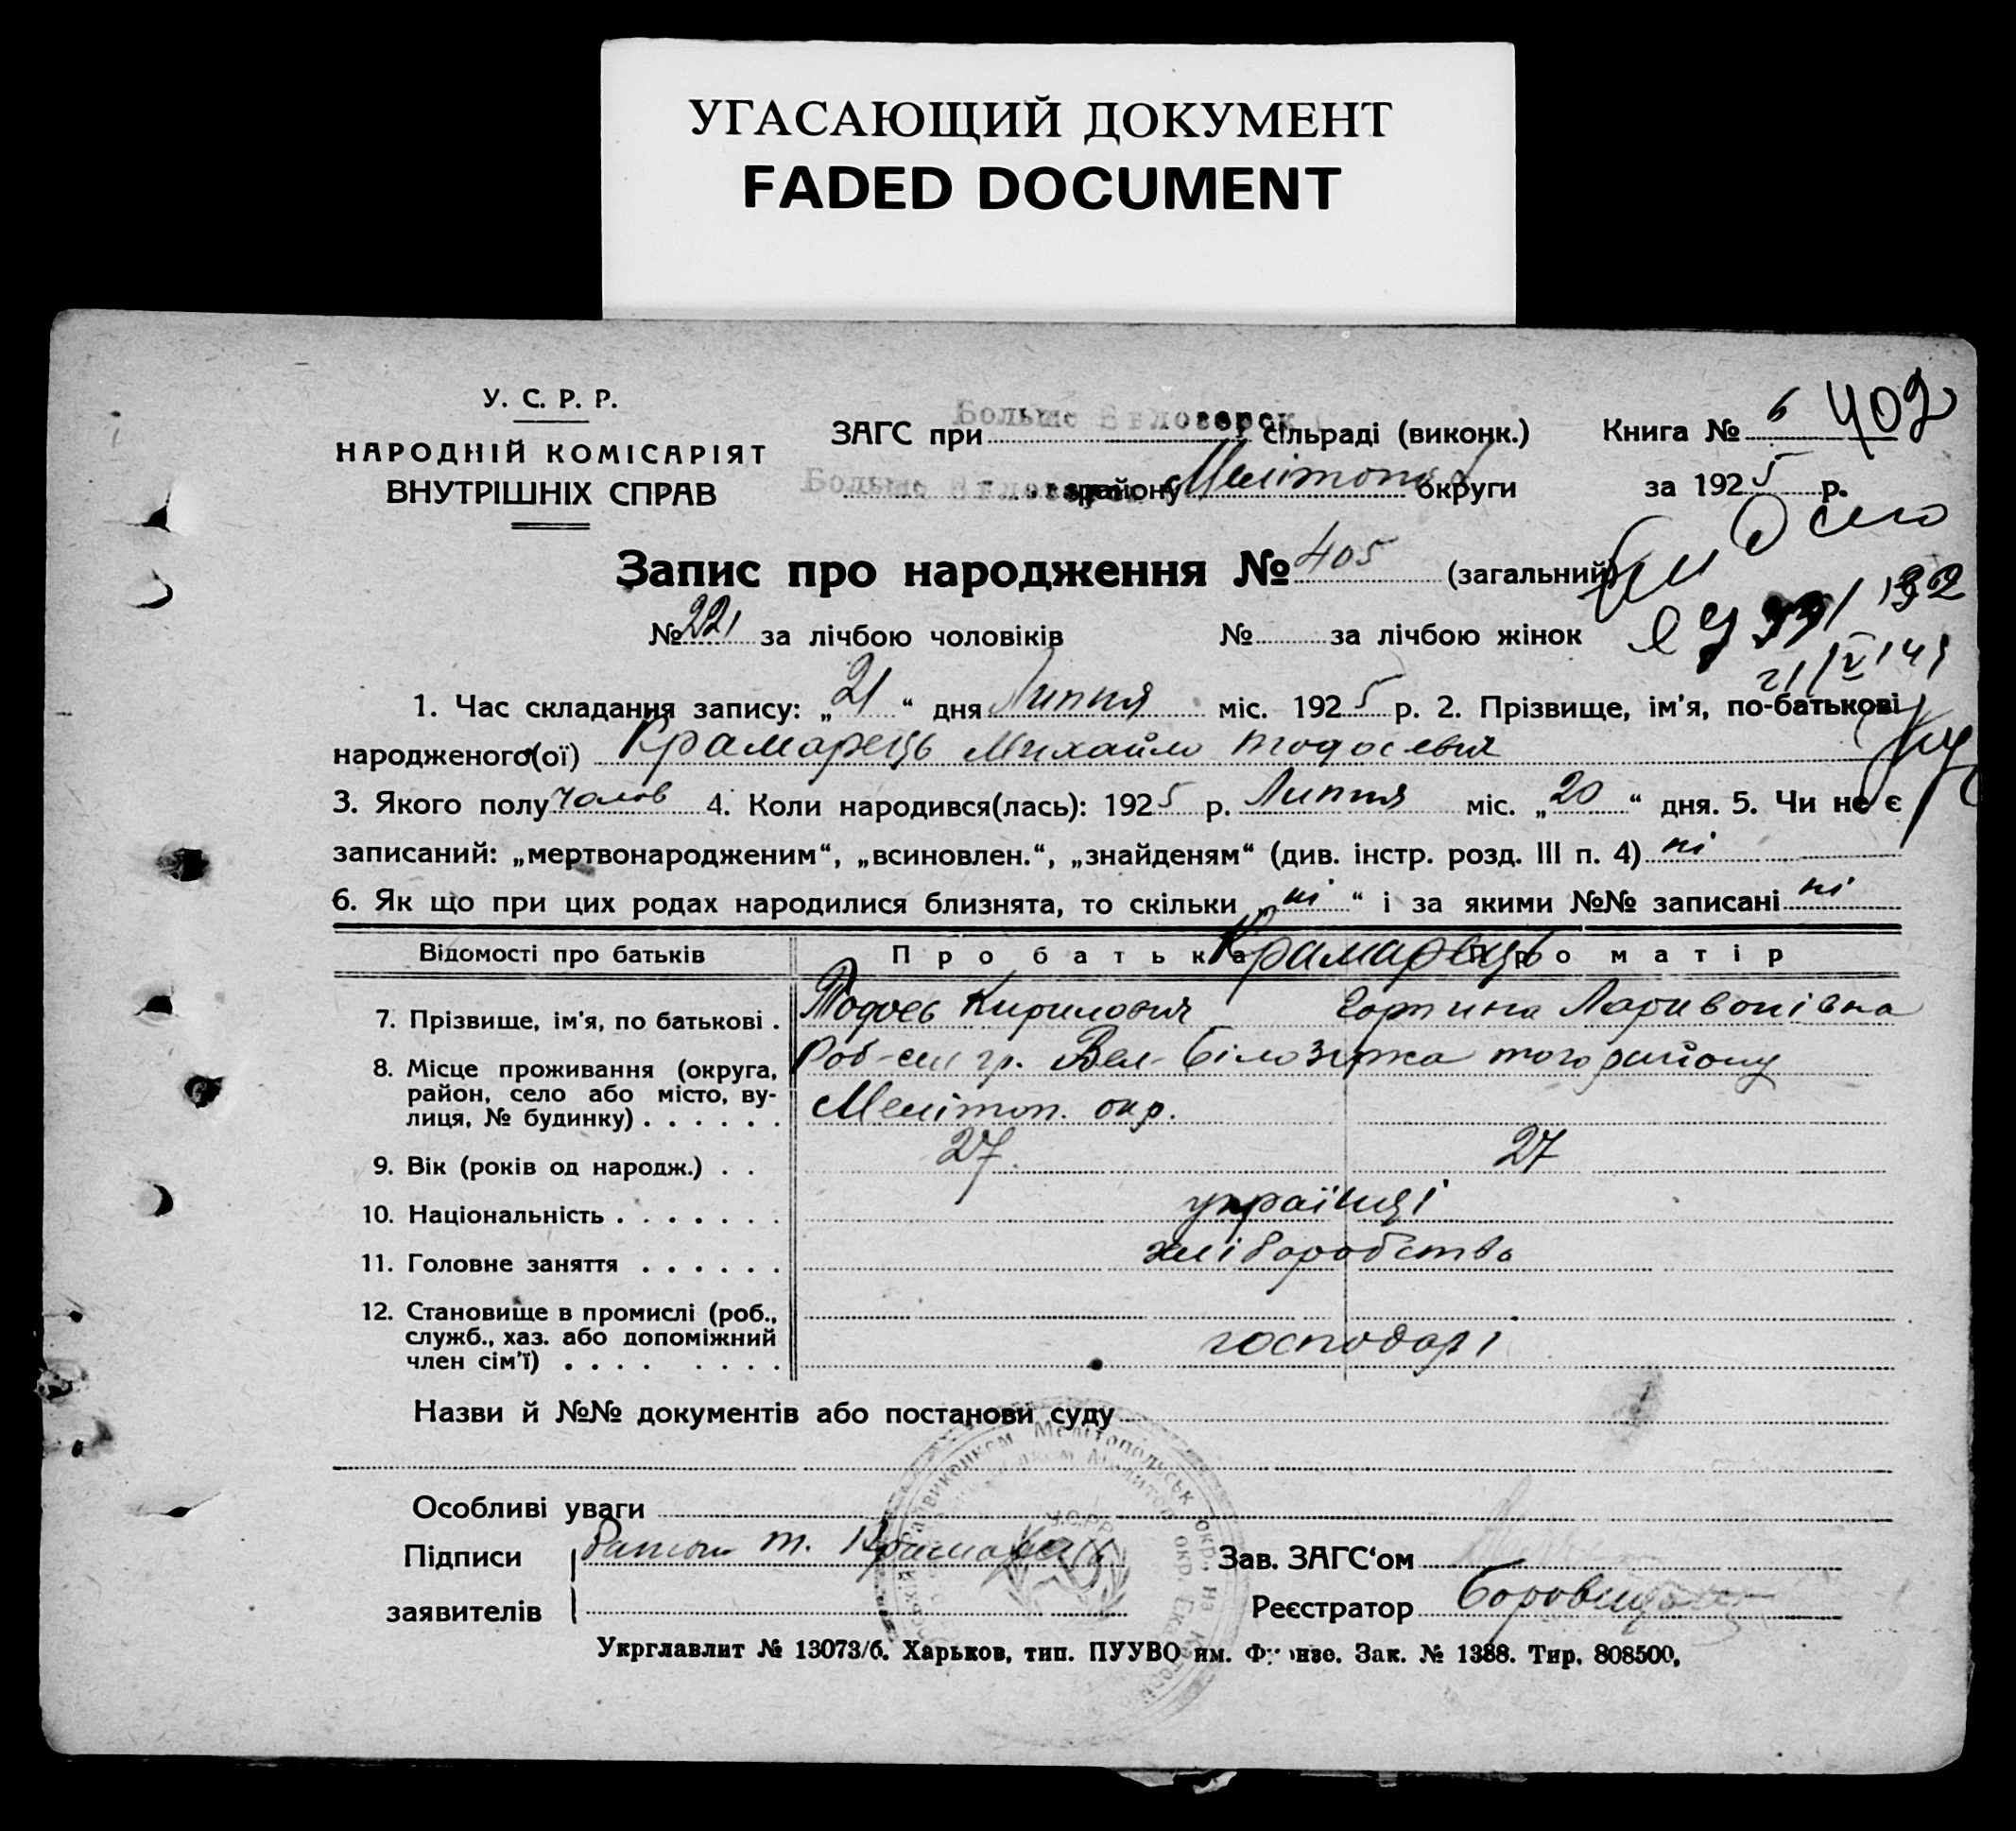 УГАСАЮЩИЙ ДОКУМЕНТ
FADED DOCUMENT
У. С. Р. Р.
НАРОДНІЙ КОМІСАРІЯТ
ВНУТРІШНІХ СПРАВ
ЗАГС при Больше Білозерск сільраді (виконк.)
Больше району Меліտոп округи
Книга № 6 402
за 1925 р.
Запис про народження № 405 (загальний)
№ 221 за лічбою чоловіків № за лічбою жінок
1. Час складання запису: „21“ дня Липня міс. 1925 р. 2. Прізвище, ім'я, по-батькові
народженого(ої) Крамарець Михайло Тодосевич
3. Якого полу чолов 4. Коли народився(лась): 1925 р. Липня міс. „20“ дня. 5. Чи не є
записаний: „мертвонародженим“, „всиновлен.“, „знайденям“ (див. інстр. розд. III п. 4) ні
6. Як що при цих родах народилися близнята, то скільки „ні“ і за якими №№ записані ні
Відомості про батьків Про батька Про матір
Крамарець
7. Прізвище, ім'я, по батькові . Тодось Кирилович Горпина Ларивонівна
8. Місце проживання (округа, гр. Вел-Білозірка того району
район, село або місто, ву-
лиця, № будинку) . . . . . . Меліտոп. окр.
9. Вік (років од народж.) . . 27 27
10. Національність . . . . . . . українці
11. Головне заняття . . . . . . хліборобство
12. Становище в промислі (роб.,
служб., хаз. або допоміжний господарі
член сім'ї) . . . . . . . .
Назви й №№ документів або постанови суду
Особливі уваги
Підписи Т. Крамарець Зав. ЗАГС'ом
заявителів Реєстратор
Укрглавлит № 13073/б. Харьков, тип. ПУУВО им. Фрунзе. Зак. № 1388. Тир. 808500,